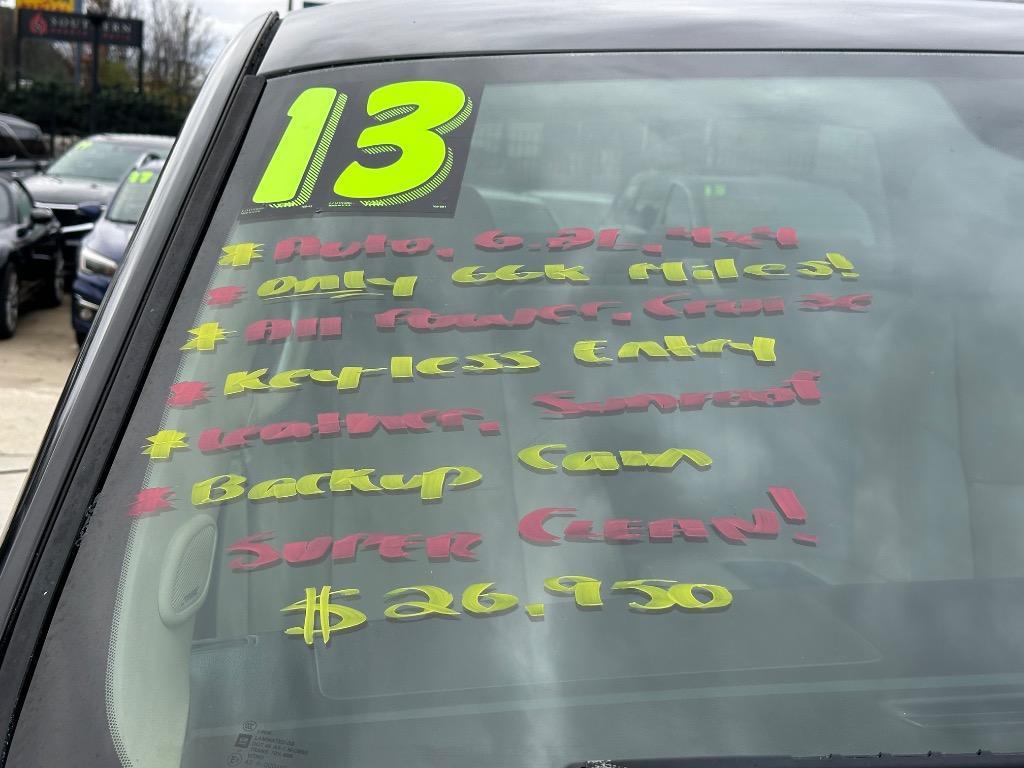 SOUTHERN
13
* Auto, 6.2L, 4x4
* Only 66K Miles!
* All Power, Cruise
* Keyless Entry
* Leather, Sunroof
* Backup Cam
Super Clean!
$26,950
LAMINATED